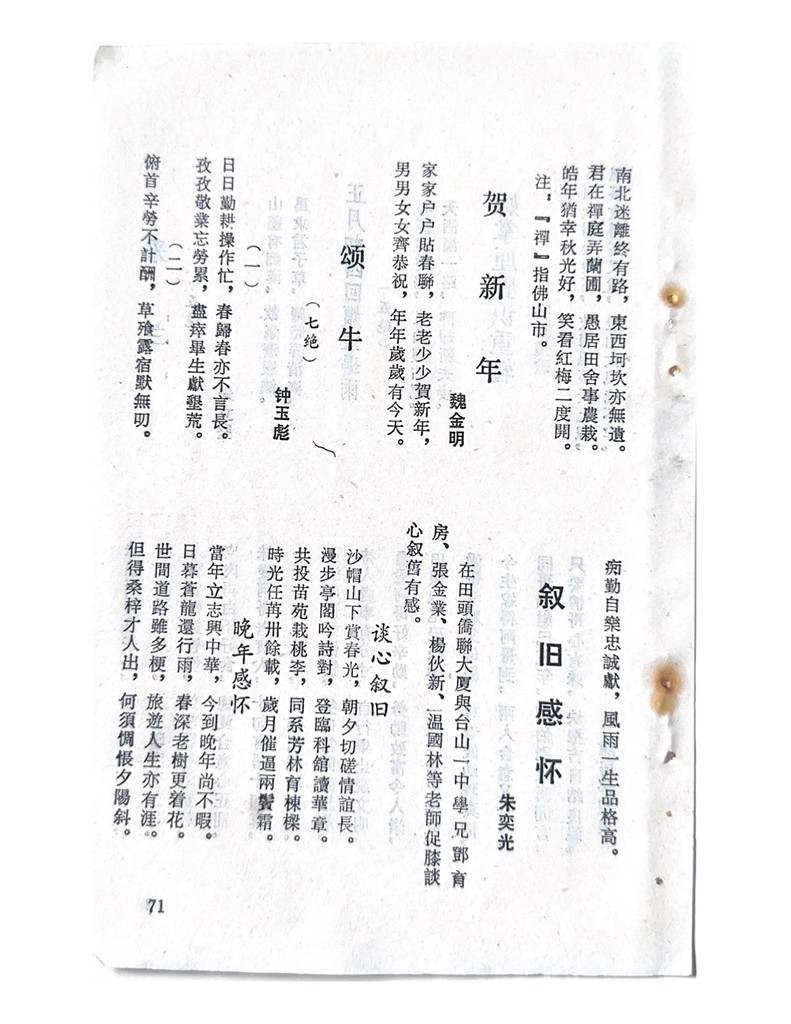 南北迷離終有路，東西坷坎亦無遺。
君在禪庭弄蘭圃，愚居田舍事農栽。
皓年猶幸秋光好，笑看紅梅二度開。
注：『禪』指佛山市。
贺新年
魏金明
家家户户貼春聯，老老少少賀新年，
男男女女齊恭祝，年年歲歲有今天。
颂牛
（七绝）
钟玉彪
（一）
日日勤耕操作忙，春歸春亦不言長。
孜孜敬業忘勞累，盡瘁畢生獻墾荒。
（二）
俯首辛勞不計酬，草飧露宿默無叨。
痾勤自樂忠誠獻，風雨一生品格高。
叙旧感怀
朱奕光
在田頭僑聯大廈與台山一中學兄鄧育
房、張金業、楊伙新、温國林等老師促膝談
心叙舊有感。
谈心叙旧
沙帽山下賞春光，朝夕切磋情誼長。
漫步亭閣吟詩對，登臨科舘讀華章。
共投苗苑栽桃李，同系芳林育棟樑。
時光任苒卅餘載，歲月催逼兩鬢霜。
晚年感怀
當年立志興中華，今到晚年尚不暇。
日暮蒼龍還行雨，春深老樹更着花。
世間道路雖多梗，旅遊人生亦有涯。
但得桑梓才人出，何須惆悵夕陽斜。
71